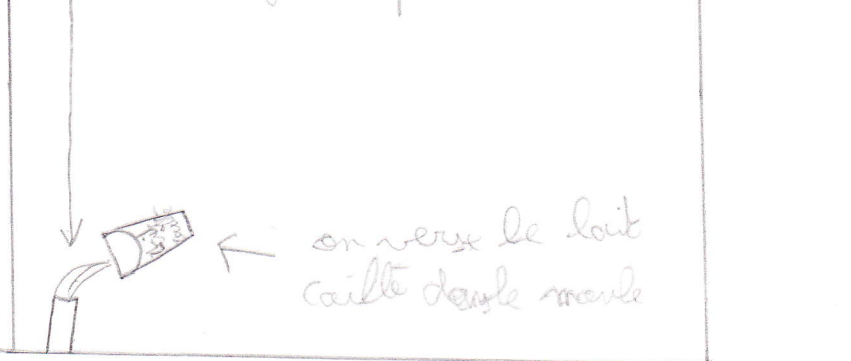 on verse le lait
caillé dans le moule